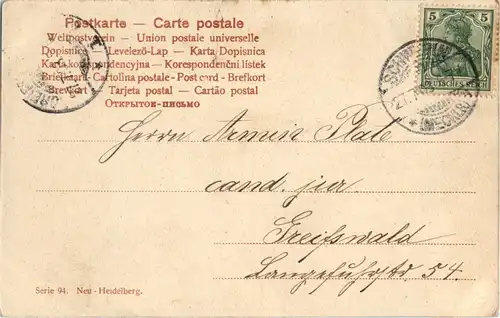 Postkarte — Carte postale
Weltpostverein — Union postale universelle
Dopisnice — Levelező-Lap — Karta Dopisnica
Karta korespondencyjna — Korespondenční lístek
Briefkaart - Cartolina postale - Post card - Brefkort
Brevkort — Tarjeta postal — Cartão postal
ОТКРЫТОЕ-ПИСЬМО
5 5
DEUTSCHES REICH
(MECKLB)
Herrn Armin Plate
cand. jur
Greifswald
Langefuhrstr 54.
Serie 94. Neu-Heidelberg.